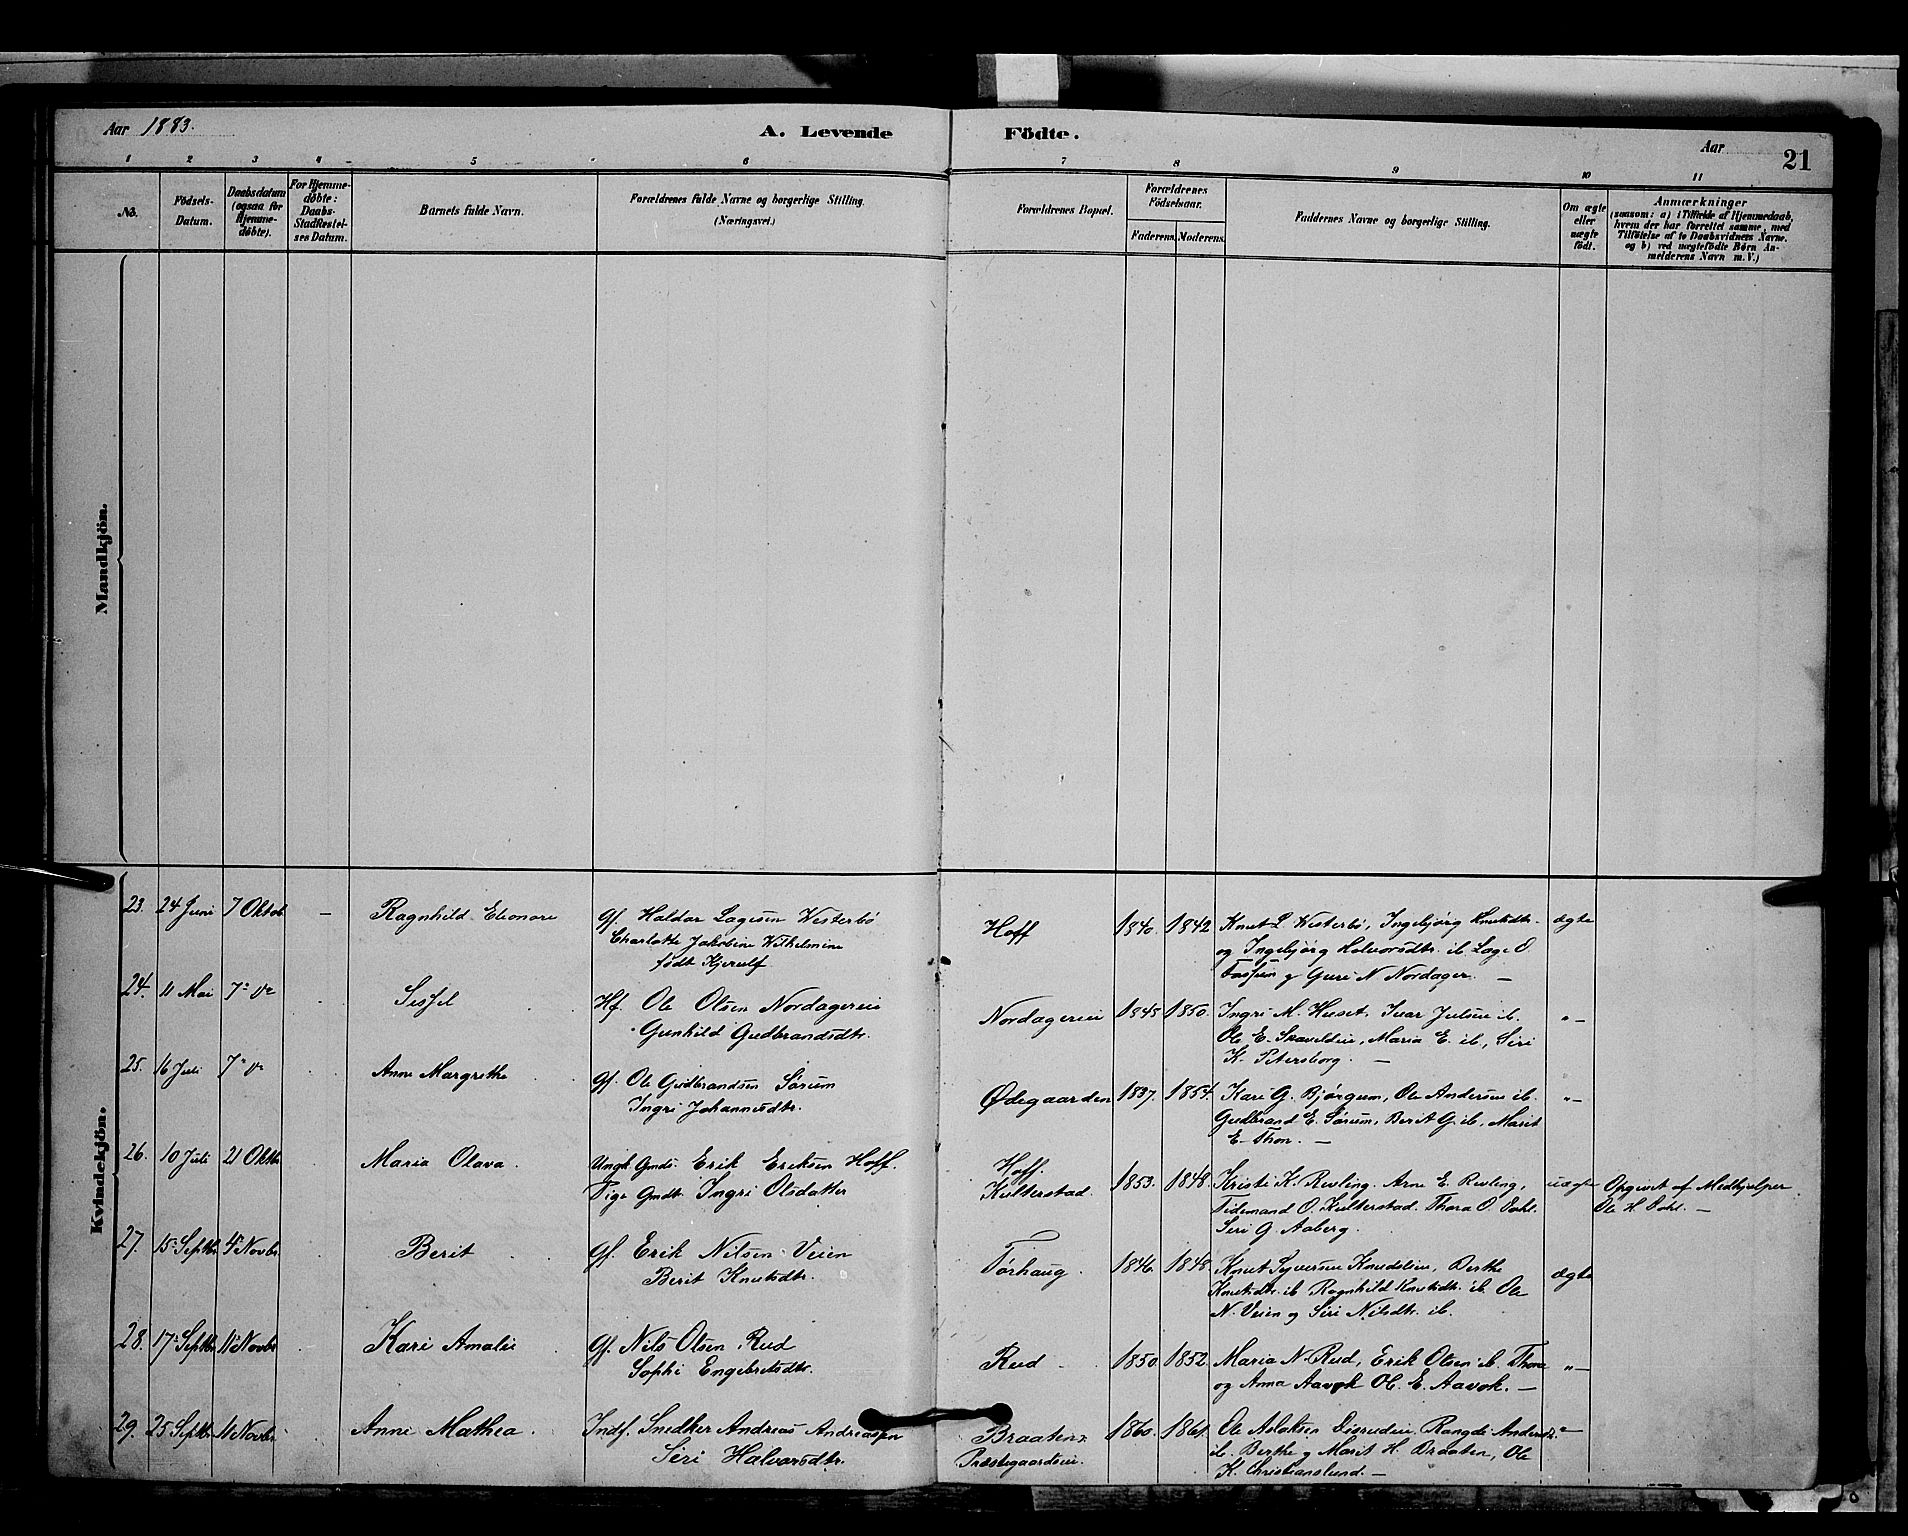 Aar 1883. A. Levende Födte. Aar 21
1 2 3 4 5 6 7 8 9 10 11
No.
Födsels-Datum.
Daabsdatum (ogsaa for Hjemme-døbte).
For Hjemme-døbte: Daabs-Stadfæstel-ses Datum.
Barnets fulde Navn.
Forældrenes fulde Navne og borgerlige Stilling.
(Næringsvei.)
Forældrenes Bopæl.
Forældrenes Födselsaar.
Faderens. Moderens.
Faddernes Navne og borgerlige Stilling.
Om ægte eller uægte født.
Anmærkninger
(saasom: a) i Tilfælde af Hjemmedaab,
hvem der har forrettet samme, med
Tilføielse af to Daabsvidners Navne,
og b) ved uægtefödte Börn An-
melderens Navn m. V.)
Mandkjön.
Kvindekjön.
23. 24 Juni 7 Oktob. – Ragnhild Eleonore Gf. Haldor Lagesen Westerbø
Charlotte Jakobine Wilhelmine
født Kjerulf
Hoff 1840. 1842 Knut L. Westerbø, Ingebjørg Knutsdtr.
og Ingebjørg Halvorsdtr. ib. Lage O.
Fossum g Guri N Nordager. –
ægte
24. 11 Mai 7de do Sissel Hf. Ole Olsen Nordagereie
Gunhild Gudbrandsdtr.
Nordagereie 1845 1850. Ingri M. Huset, Ivar Julsen ib.
Ole E. Maria E. ib, Siri
K. Petersborg. –
"–
25. 16 Juli 7de do Anne Margrethe Gf. Ole Gudbrandsen Sørum
Ingri Johannesdtr.
Ødegaarden 1837. 1854. Kari G. Bjørgum, Ole Andersen ib.
Gudbrand E. Sørum, Berit G. ib. Marit
E. Thon. –
"–
26. 10 Juli 21 Oktbr Maria Olava. Ungk. Gmds. Erik Eriksen Hoff.
Pige Gmdt. Ingri Olsdatter
Hoff.
Kulterstad. 1853. 1848. Kristi K. Revling. Arne E. Revling,
Tidemand O. Kulterstad. Thora O. Dahl.
Siri G. Aaberg.
uægte Opgivet af Medhjælper
Ole H. Dahl. –
27. 15 Septbr 4 Novbr Berit Gf. Erik Nilsen Veien
Berit Knutsdtr.
Tørhaug. 1846. 1848. Knut Syversen Knudeleie, Berthe
Knutsdtr. ib Ragnhild Knutsdtr. ib. Ole
N. Veien g Siri Nilsdtr. ib.
ægte
28. 17 Septbr 11 Novbr Kari Amalie Gf. Nils Olsen Rud
Sophi Engebretsdtr.
Rud 1850 1852. Maria N. Rud, Erik Olsen ib. Thora
og Anna Aavok Ole E. Aavok. –
"–
29. 25 Septbr 11 Novbr Anne Mathea. Indf. Snedker Andreas Andreassen
Siri Halvorsdtr.
Braaten
Præstegaardseie. 1860. 1861. Ole Aslaksen Disrudeie, Rangdi Andersdtr.
ib. Berthe g Marit H. Braaten, Ole
K. Christianslund. –
"–